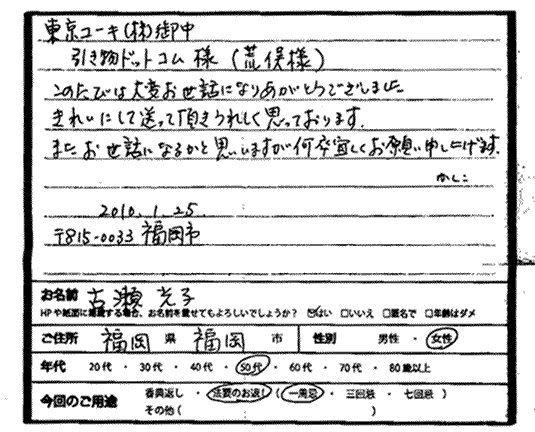 東京ユーキ(株)御中
引き物ドットコム様 (荒俣様)
このたびは大変お世話になりありがとうございました
きれいにして送って頂きうれしく思っております.
またお世話になるかと思いますが何卒宜しくお願い申し上げます.
かしこ
2010.1.25.
〒815-0033 福岡市
お名前 古瀬 光子
HPや紙面に掲載する場合、お名前を載せてもよろしいでしょうか? ☑はい □いいえ □匿名で □年齢はダメ
ご住所 福岡 県 福岡 市 性別 男性 ・ 女性
年代 20代 ・ 30代 ・ 40代 ・ 50代 ・ 60代 ・ 70代 ・ 80歳以上
今回のご用途 香典返し ・ 法要のお返し ( 一周忌 ・ 三回忌 ・ 七回忌 )
その他 ( )